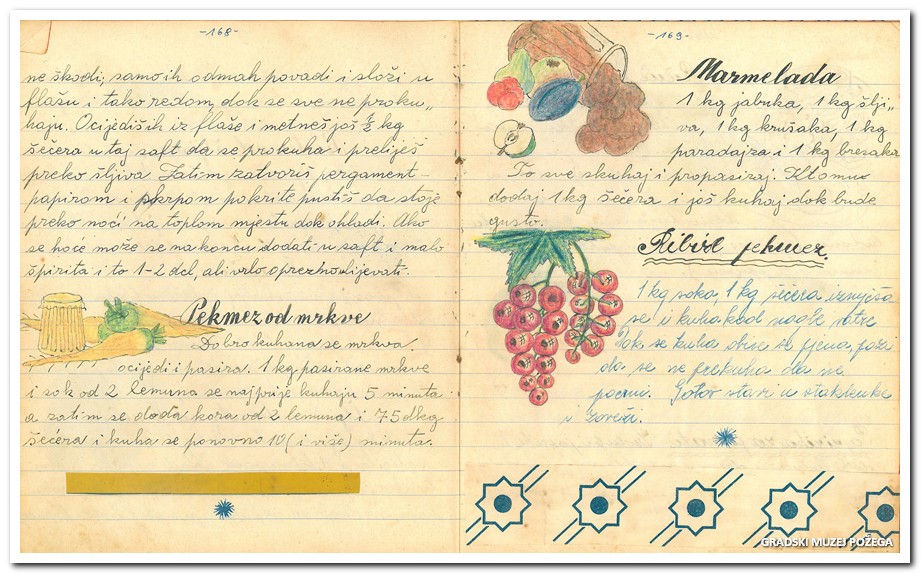 -168-
ne škodi, samo ih odmah povadi i složi u
flašu i tako redom dok se sve ne proku„
haju. Ocijediših iz flaše i metneš još ½ kg
šećera u taj saft da se prokuha i preliješ
preko šljiva. Zatim zatvoriš pergament-
papirom i pkrpom pokrite pustiš da stoje
preko noći na toplom mjestu dok ohladi. Ako
se hoće može se na koncu dodati u saft i malo
špirita i to 1-2 dcl, ali vrlo oprezno lijevati.
Pekmez od mrkve
Dobro kuhana se mrkva
ocijedi i pasira. 1 kg. pasirane mrkve
i sok od 2 lemuna se najprije kuhaju 5 minuta
a zatim se doda kora od 2 lemuna i 75 dkg
šećera i kuha se ponovno 10 (i više) minuta.
-169-
Marmelada
1 kg jabuka, 1 kg šlji-
va, 1 kg krušaka, 1 kg
paradajza i 1 kg bresaka
To sve skuhaj i propasiraj. K tomu
dodaj 1 kg šećera i još kuhaj dok bude
gusto.
Ribizl pekmez.
1 kg soka, 1 kg šećera izmješa
se i kuha kod vatre
Dok se kuha se pjena, pazi
da se ne prekuha da ne
Gotov stavi u staklenke
i zaveži.
GRADSKI MUZEJ POŽEGA